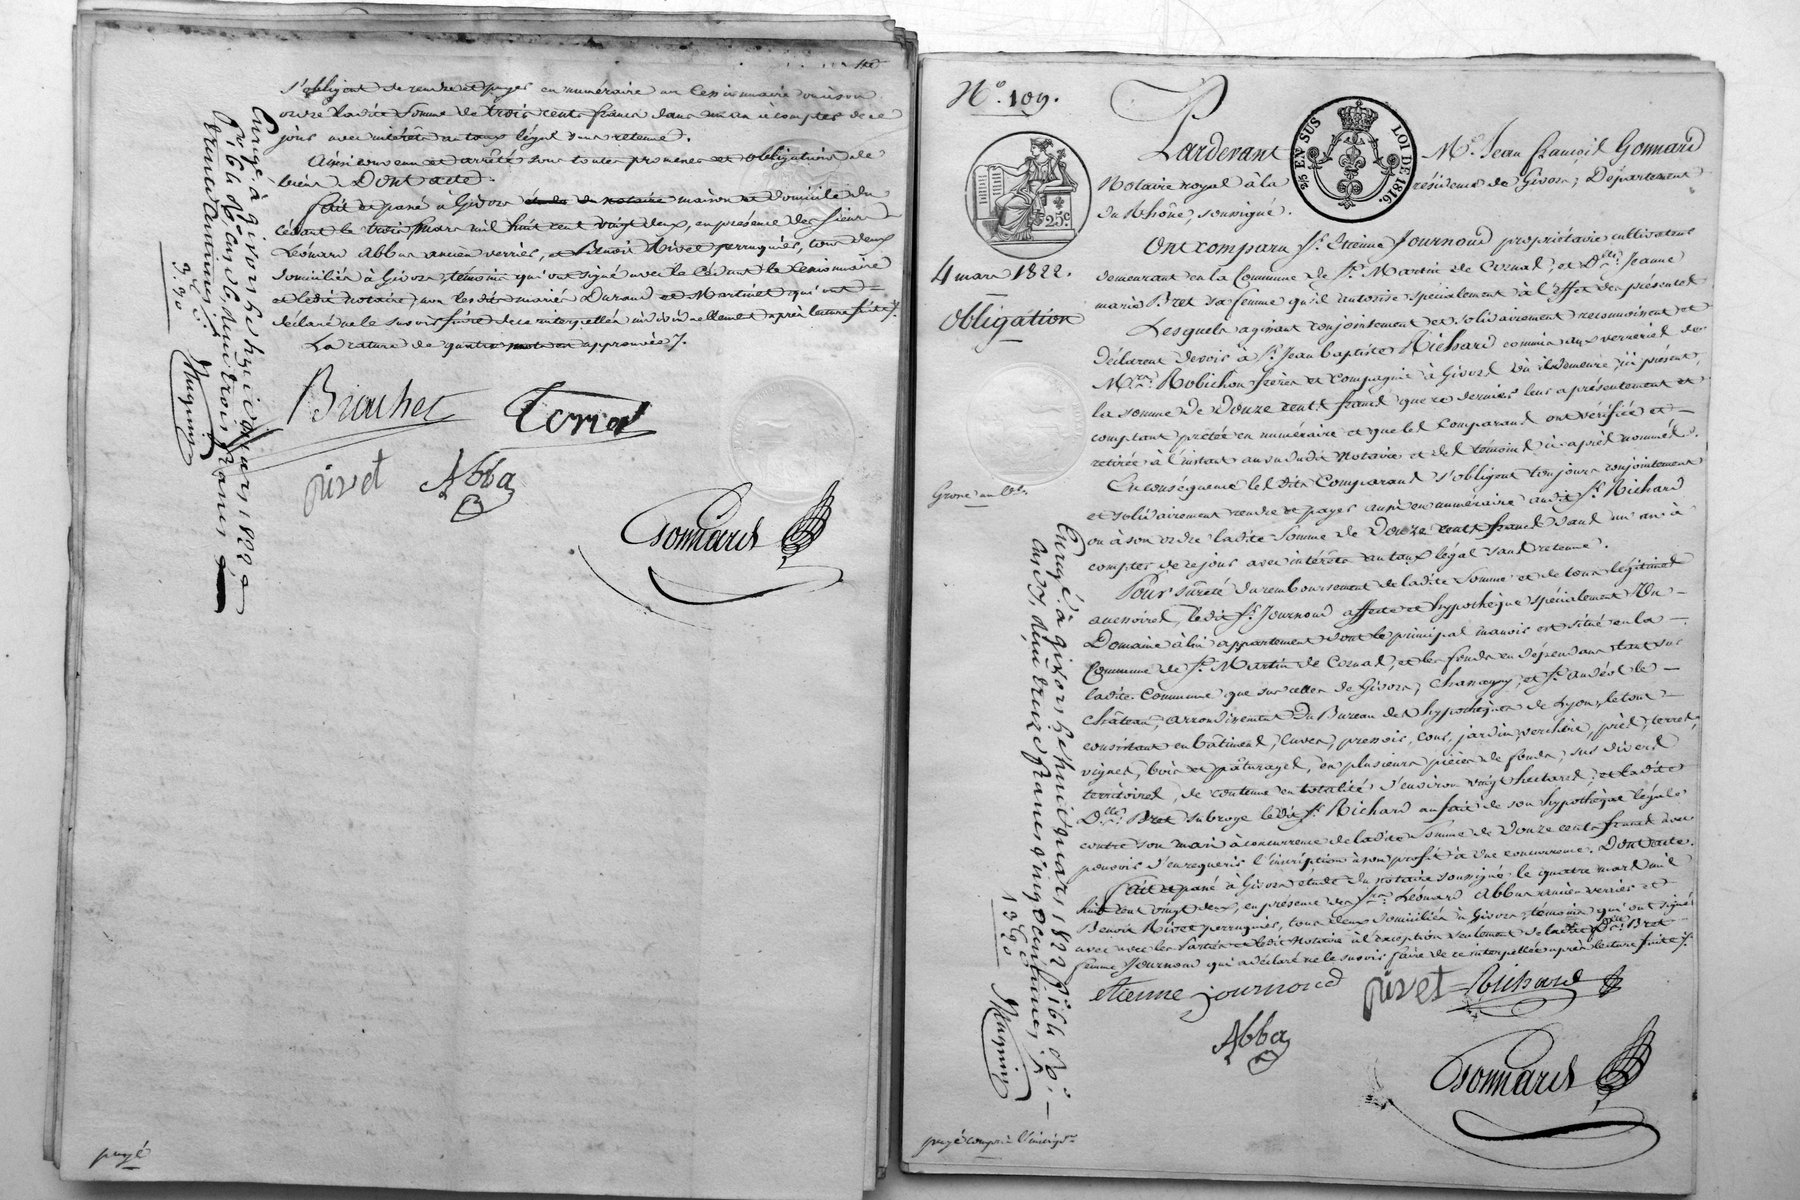 s'obligent de rendre et payer en numéraire au cessionnaire ou à son
ordre la dite somme de trois cents francs dans un an à compter de ce
jour avec intérêts au taux légal sans retenue.
Ainsi convenu et arrêté sous toutes promesses et obligations de
biens. Dont acte.
Fait et passé à Givors étude du notaire maison et domicile du
cédant le trois mars mil huit cent vingt deux, en présence des sieurs
Léonard Abba ancien verrier, et Benoit Rivet perruquier, tous deux
domiciliés à Givors, témoins qui ont signé avec le cédant le cessionnaire
et ledit notaire, non les dits mariés Durand et Martinet qui ont
déclaré ne le savoir faire de ce interpellés individuellement après lecture faite.
La rature de quatre mots est approuvée.
Brouhet
Rivet Abba
Gonnard
Enregé à Givors le huit mars 1822
trente centimes
3.
3.30
Mugnier
payé
N.o 109.
25 EN SUS
LOI DE 1816.
25c
4 mars 1822.
Obligation
Grosse
Pardevant M.e Jean François Gonnard
Notaire royal à la résidence de Givors, Département
du Rhône, soussigné.
Ont comparu S.r Etienne Journoud propriétaire cultivateur
demeurant en la Commune de S.t Martin de Cornas, et D.lle Jeanne
marie Bret sa femme qu'il autorise spécialement à l'effet des présentes
Lesquels agissant conjointement et solidairement reconnoissent et
déclarent devoir à S.r Jean baptiste Richard commis aux verreries de
M.rs Robichon frères et Compagnie à Givors où il demeure, ici présent,
la somme de Douze cents francs que ce dernier leur a présentement et
comptant prêtée en numéraire et que les Comparans ont vérifiée et
retirée à l'instant au vu dudit Notaire et des témoins ci-après nommés.
En conséquence les dits Comparans s'obligent toujours conjointement
et solidairement rendre et payer aussi en numéraire audit S.r Richard
ou à son ordre ladite somme de Douze cents francs dans un an à
compter de ce jour avec intérêts au taux légal sans retenue.
Pour sûreté du remboursement de ladite somme et de tous légitimes
accessoires, ledit S.r Journoud affecte et hypothèque spécialement Un
Domaine à lui appartenant dont le principal manoir est situé en la
Commune de S.t Martin de Cornas, et les fonds en dépendans tant sur
ladite Commune que sur celles de Givors, Chassagny, et S.t andéol le
château, arrondissement Du Bureau des hypothèques de Lyon, le tout
consistant en bâtimens, Cuves, pressoir, cour, jardin, verchère, prés, terres,
vignes, bois et pâturages, en plusieurs pièces de fonds, sur divers
territoires, de contenue en totalité d'environ vingt hectares; et ladite
D.lle Bret subroge ledit S.r Richard au fait de son hypothèque légale
contre son mari à concurrence de ladite somme de Douze cents francs avec
pouvoir d'en requérir l'inscription à son profit à due concurrence. Dont acte.
Fait et passé à Givors étude du notaire soussigné le quatre mars mil
huit cent vingt deux, en présence des S.rs Léonard Abba ancien verrier et
Benoit Rivet perruquier, tous deux domiciliés à Givors, témoins qui ont signé
avec les Parties et ledit Notaire à l'exception seulement de ladite D.lle Bret
femme Journoud qui a déclaré ne le savoir faire de ce interpellée après lecture faite.
etienne journoud Rivet Richard
Abba
Gonnard
Enregé à Givors le huit mars 1822
13.20
Mugnier
payé compris